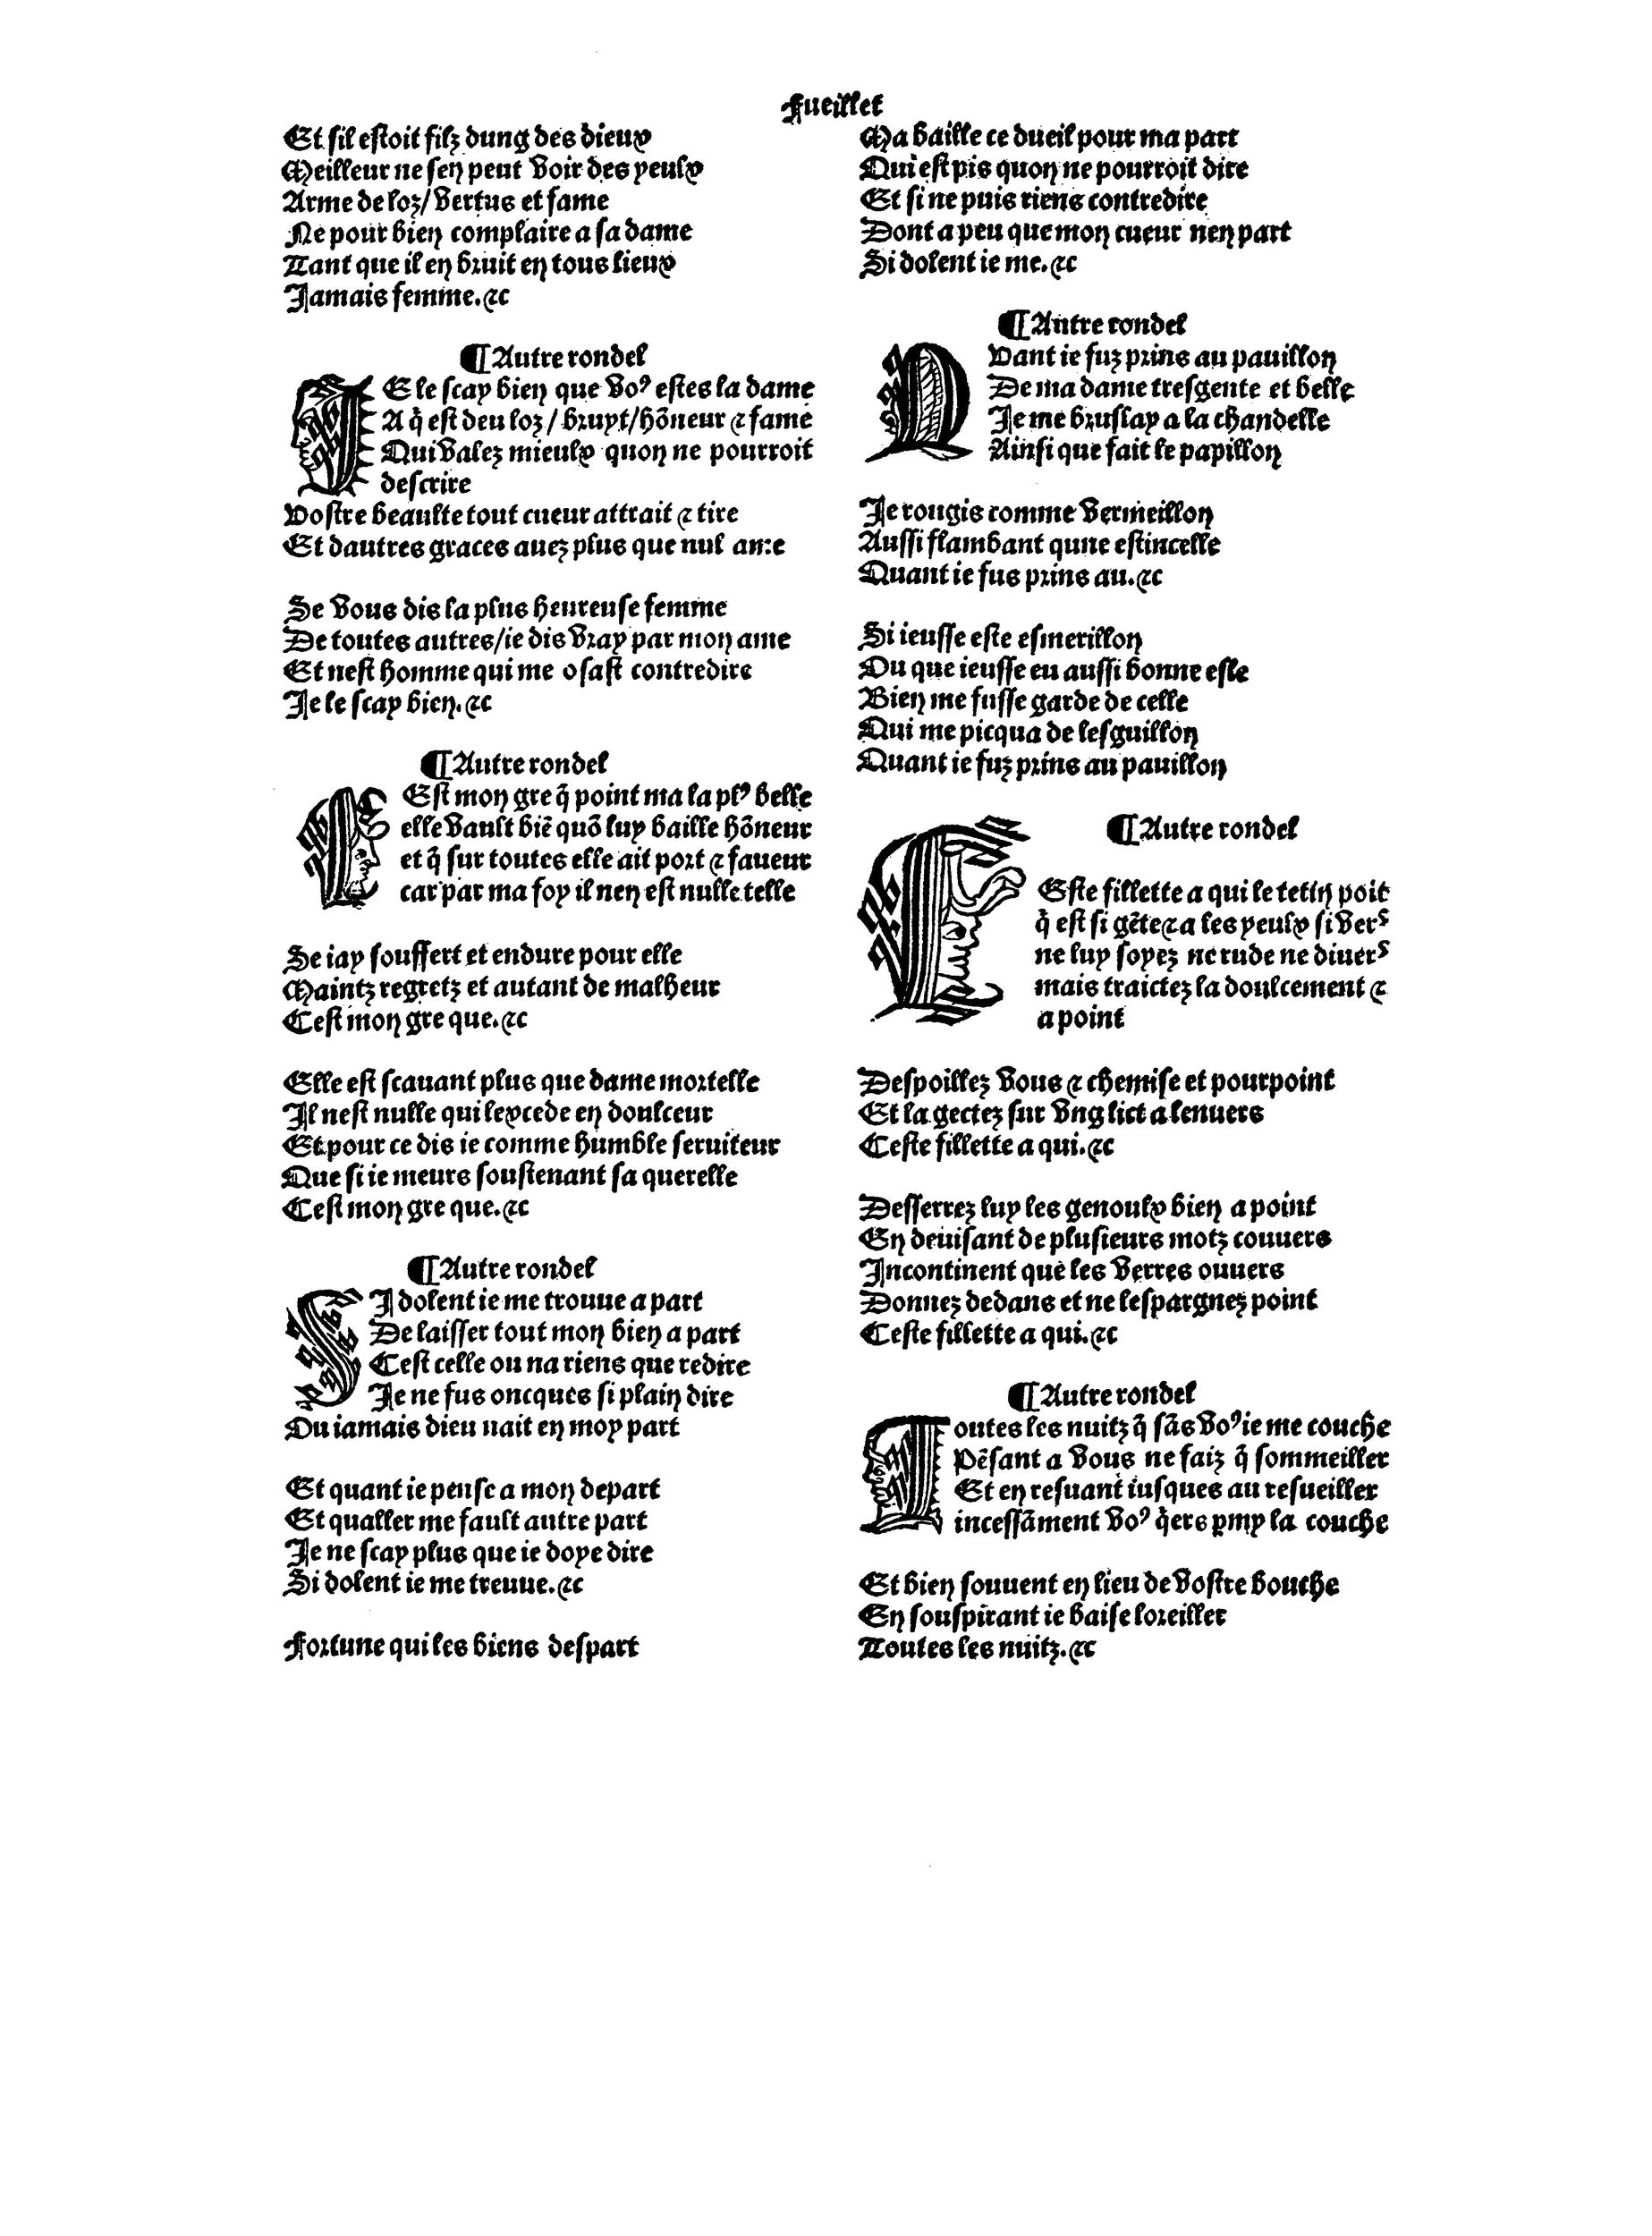 Fueillet
Et sil estoit filz dung des dieux
Meilleur ne sen peut voir des yeulx
Arme de loz/vertus et fame
Ne pour bien complaire a sa dame
Tant que il en bruit en tous lieux
Jamais femme.⁊c
¶Autre rondel
JE le scay bien que voꝰ estes la dame
A q̇ est deu loz/bruyt/hõneur ⁊ fame
Qui valez mieulx quon ne pourroit
descrire
Vostre beaulte tout cueur attrait ⁊ tire
Et dautres graces auez plus que nul ame
Se vous dis la plus heureuse femme
De toutes autres/ie dis vray par mon ame
Et nest homme qui me osast contredire
Je le scay bien.⁊c
¶Autre rondel
CEst mon gre q̃ point ma la plꝰ belle
elle vault biẽ quõ luy baille hõneur
et q̃ sur toutes elle ait port ⁊ faueur
car par ma foy il nen est nulle telle
Se iay souffert et endure pour elle
Maintz regretz et autant de malheur
Cest mon gre que.⁊c
Elle est scauant plus que dame mortelle
Il nest nulle qui lexcede en doulceur
Et pour ce dis ie comme humble seruiteur
Que si ie meurs soustenant sa querelle
Cest mon gre que.⁊c
¶Autre rondel
SI dolent ie me trouue a part
De laisser tout mon bien a part
Cest celle ou na riens que redire
Je ne fus oncques si plain dire
Ou iamais dieu nait en moy part
Et quant ie pense a mon depart
Et qualler me fault autre part
Je ne scay plus que ie doye dire
Si dolent ie me treuue.⁊c
Fortune qui les biens despart
Ma baille ce dueil pour ma part
Qui est pis quon ne pourroit dire
Et si ne puis riens contredire
Dont a peu que mon cueur nen part
Si dolent ie me.⁊c
¶Antre rondel
QVant ie fuz prins au pauillon
De ma dame tresgente et belle
Je me bruslay a la chandelle
Ainsi que fait le papillon
Je rougis comme vermeillon
Aussi flambant qune estincelle
Quant ie fus prins au.⁊c
Si ieusse este esmerillon
Ou que ieusse eu aussi bonne esle
Bien me fusse garde de celle
Qui me picqua de lesguillon
Quant ie fuz prins au pauillon
¶Autre rondel
CEste fillette a qui le tetin poit
q̇ est si gẽte⁊a les yeulx si vers
ne luy soyez ne rude ne diuers
mais traictez la doulcement ⁊
a point
Despoillez vous ⁊ chemise et pourpoint
Et la gectez sur vng lict a lenuers
Ceste fillette a qui.⁊c
Desserrez luy les genoulx bien a point
En deuisant de plusieurs motz couuers
Incontinent que les verres ouuers
Donnez dedans et ne lespargnez point
Ceste fillette a qui.⁊c
¶Autre rondel
Toutes les nuitz q̃ sãs voꝰ ie me couche
Pẽsant a vous ne faiz q̃ sommeiller
Et en resuant iusques au resueiller
incessãment voꝰ q̇ers pmy la couche
Et bien souuent en lieu de vostre bouche
En souspirant ie baise loreiller
Toutes les nuitz.⁊c